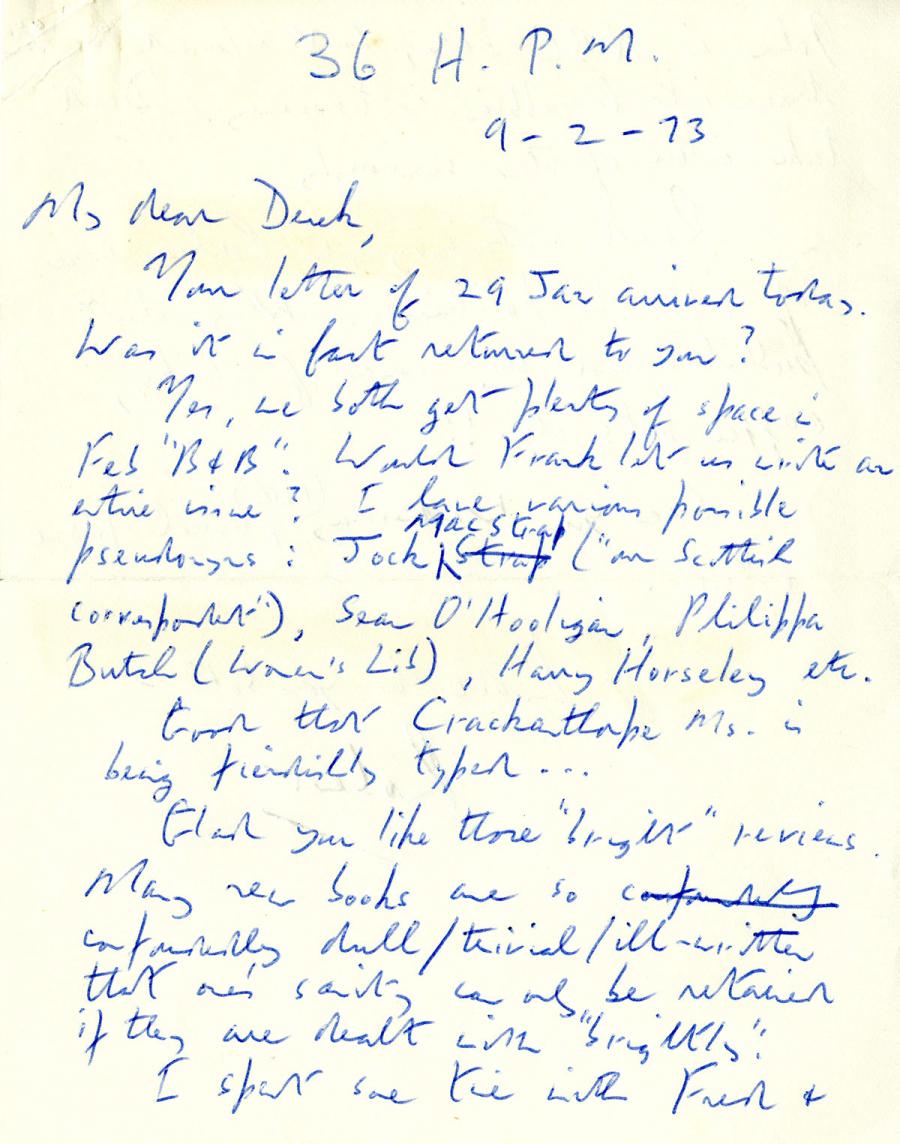 36 H. P. M.
9 - 2 - 73
My dear Derek,
Your letter of 29 Jan arrived today.
Was it in fact returned to you?
Yes, we both get plenty of space in
Feb "B & B". Would Frank let us write an
entire issue? I have various possible
pseudonyms: Jock MacStrap Strap ("our Scottish
correspondent"), Sean O'Hooligan, Philippa
Butch (Women's Lib), Harry Horseley etc.
Good that Crackanthorpe Ms. is
being fiendishly typed ...
Glad you like those "bright" reviews.
Many new books are so confoundedly
confoundedly dull/trivial/ill-written
that one's sanity can only be retained
if they are dealt with "brightly".
I spent some time with Fred &